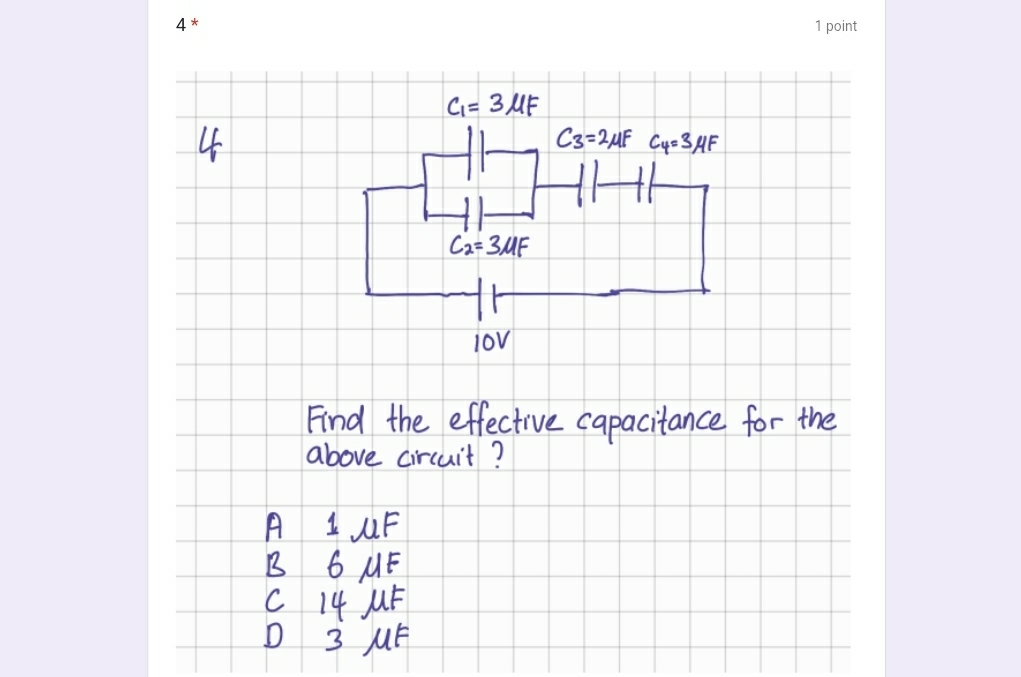 4 *
1 point
4
C1= 3 μF
C3=2μF C4=3μF
C2=3μF
10V
Find the effective capacitance for the
above circuit ?
A 1 μF
B 6 μF
C 14 μF
D 3 μF